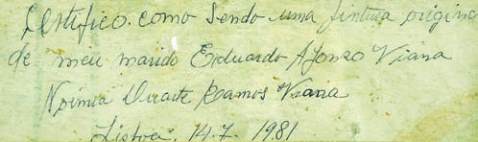 Certifico como sendo uma pintura origin
de meu marido Eduardo Afonso Viana
Noémia Duarte Ramos Viana
Lisboa, 14.7.1981